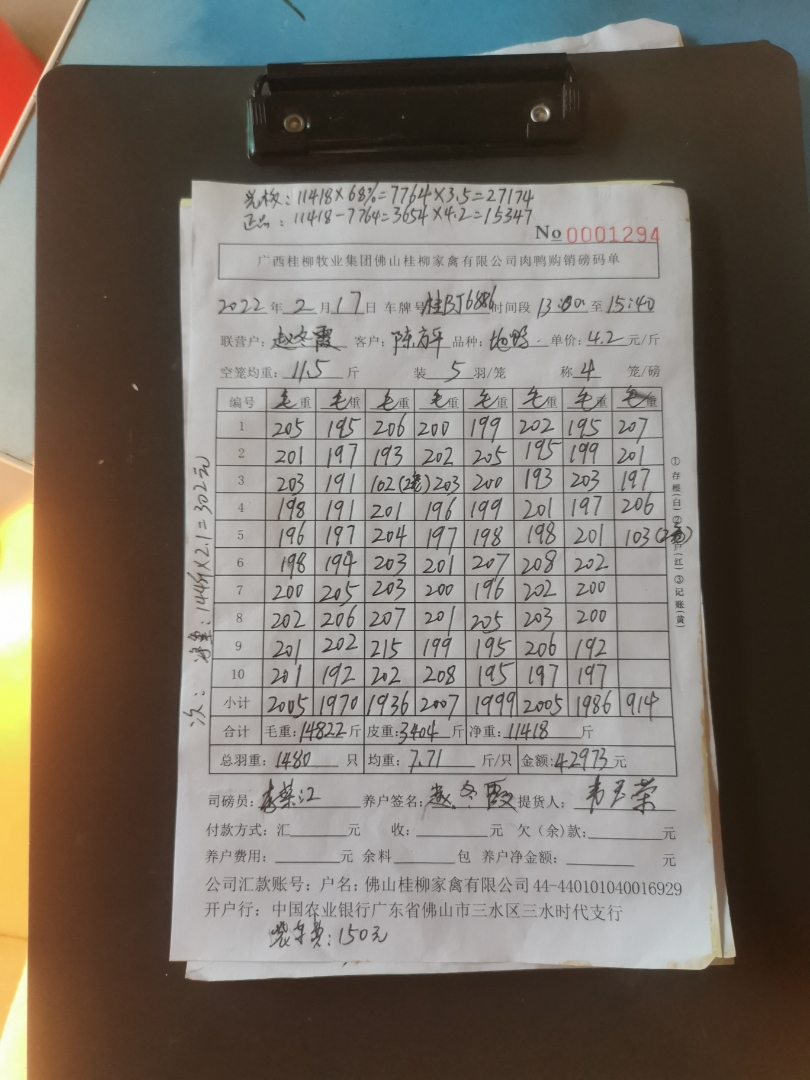 光板: 11418×68%=7764×3.5=27174
正品: 11418-7764=3654×4.2=15347
No 0001294
广西桂柳牧业集团佛山桂柳家禽有限公司肉鸭购销磅码单
2022年2月17日 车牌号桂BJ6886时间段13:00至15:40
联营户: 赵冬霞 客户: 陈方平 品种: 单价: 4.2元/斤
空笼均重: 11.5斤 装5羽/笼 称4笼/磅
编号 毛重 毛重 毛重 毛重 毛重 毛重 毛重 毛重
1 205 195 206 200 199 202 195 207
2 201 197 193 202 205 195 199 201
3 203 191 102(2笼) 203 200 193 203 197
4 198 191 201 196 199 201 197 206
5 196 197 204 197 198 198 201 103(2笼)
6 198 194 203 201 207 208 202
7 200 205 203 200 196 202 200
8 202 206 207 201 205 203 200
9 201 202 215 199 195 206 192
10 201 192 202 208 195 197 197
小计 2005 1970 1936 2007 1999 2005 1986 914
合计 毛重:14822斤 皮重:3404斤 净重:11418斤
总羽重: 1480只 均重: 7.71斤/只 金额:42973元
司磅员: 养户签名: 赵冬霞 提货人: 韦玉荣
付款方式: 汇 元 收: 元 欠(余)款: 元
养户费用: 元 余料 包 养户净金额: 元
公司汇款账号: 户名: 佛山桂柳家禽有限公司 44-440101040016929
开户行: 中国农业银行广东省佛山市三水区三水时代支行
装车费: 150元
次: 净重: 144斤×2.1=302元
①存根(白)②客户(红)③记账(黄)